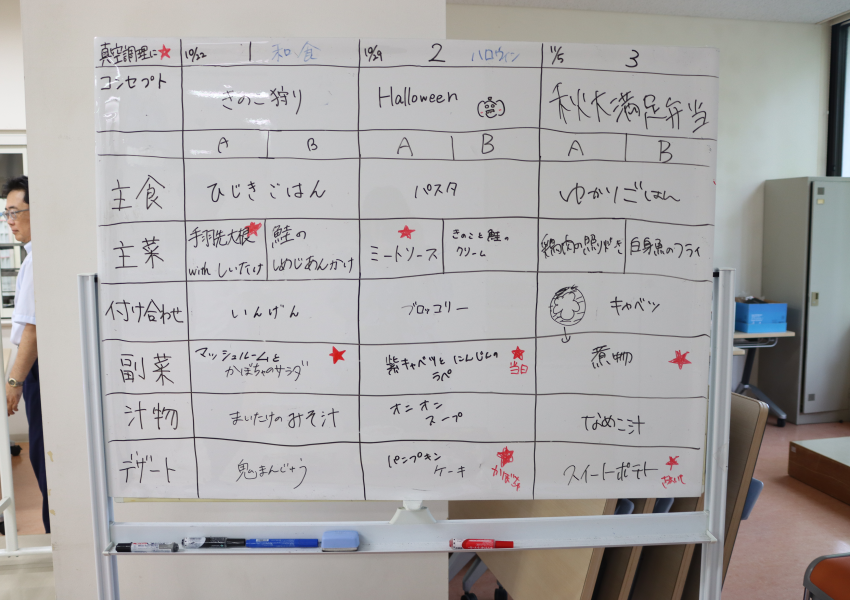 真空調理に★ 10/22 1 和食 10/29 2 ハロウィン 11/5 3
コンセプト きのこ狩り Halloween 秋大満足弁当
A B A B A B
主食 ひじきごはん パスタ ゆかりごはん
主菜 手羽先大根 with しいたけ 鮭の しめじあんかけ ★ ミートソース きのこと鮭の クリーム 鶏肉の照りやき 白身魚のフライ
付け合わせ いんげん ブロッコリー キャベツ
副菜 マッシュルームと かぼちゃのサラダ ★ 紫キャベツとにんじんの ラペ ★ 当日 煮物 ★
汁物 まいたけのみそ汁 オニオン スープ なめこ汁
デザート 鬼まんじゅう パンプキン ケーキ ★ かぼちゃ スイートポテト ★